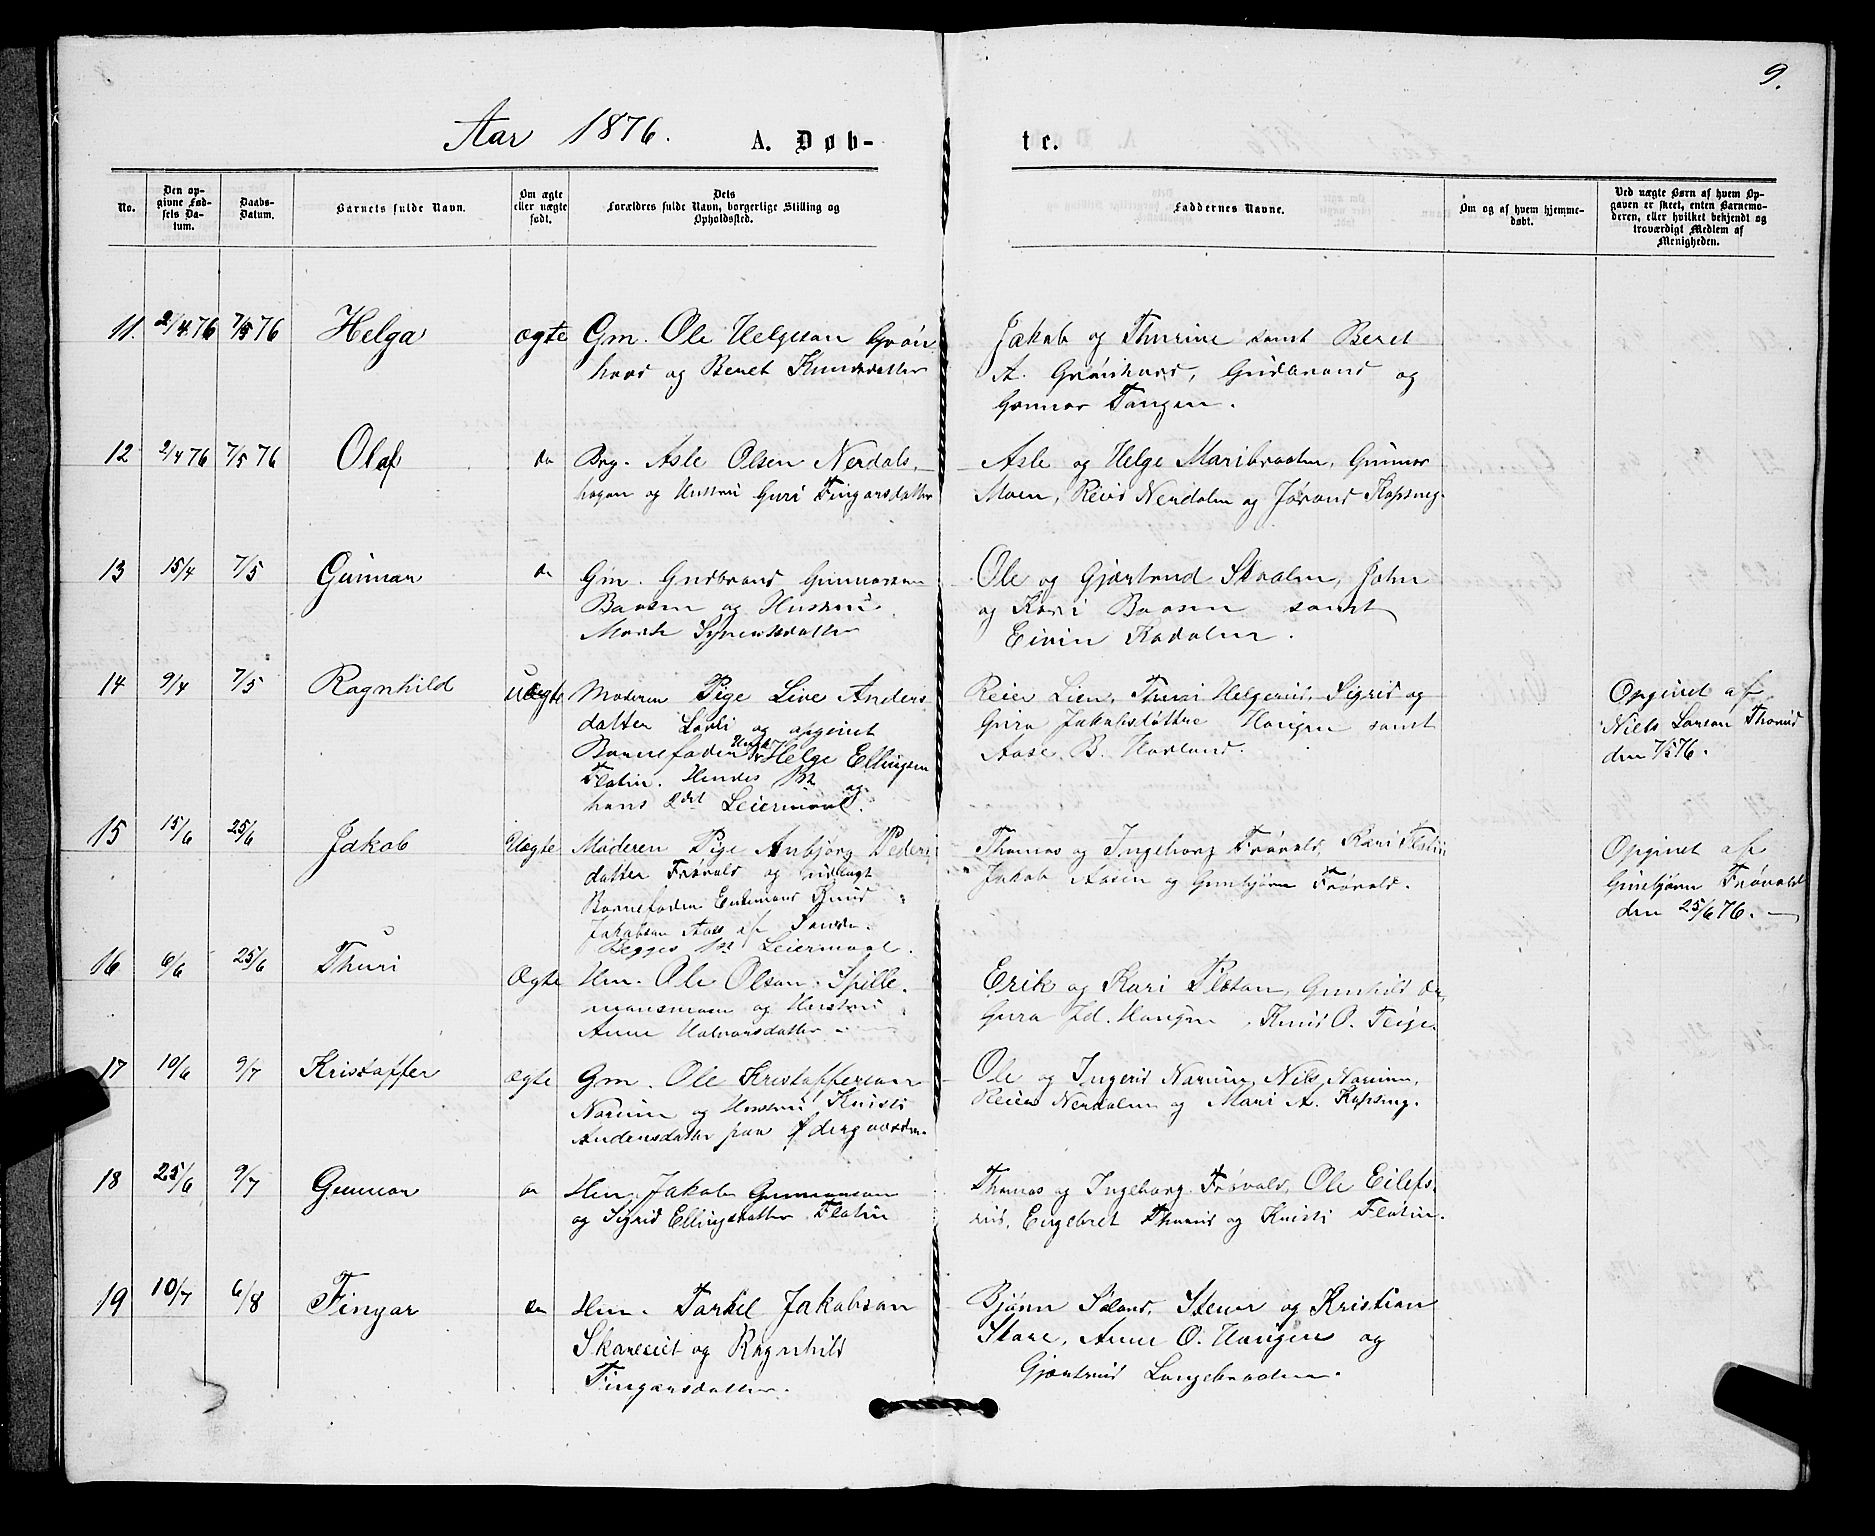 9.
Aar 1876. A. Døb- te.
No.
Den op-
givne Fød-
sels Da-
tum.
Daabs-
Datum.
Barnets fulde Navn.
Om ægte
eller uægte
født.
Dets
Forældres fulde Navn, borgerlige Stilling og
Opholdssted.
Faddernes Navne.
Om og af hvem hjemme-
døbt.
Ved uægte Børn af hvem Op-
gaven er skeet, enten Barnemo-
deren, eller hvilket bekjendt og
troværdigt Medlem af
Menigheden.
11. 2/4 76 7/5 76 Helga ægte Gm. Ole Helgesen Grøn
hovd og Beret Knudsdatter
Jakob og Thurine samt Beret
A. Grønhovd, Gudbrand og
Gunnor Tangen.
12 2/4 76 7/5 76 Olaf do Brg. Asle Olsen Nerdals
hagen og Hustru Guri Fingarsdatter
Asle og Helge Maribraaten, Gunnor
Moen, Reier Nerdalen og Jørand Kopseng.
13 15/4 7/5 Gunnar do Gm. Gudbrand Gunnarsen
Baasen og Hustru
Marit Syversdatter
Ole og Gjertrud Skaalen, John
og Kari Baasen samt
Eivin Rodalen.
14 9/4 7/5 Ragnhild uægte Moderen Pige Live Anders
datter Lorli og opgivet
Barnefader Helge Ellingsen
Flatin. Hendes 1st og
hans 2det Leiermaal.
Reier Lien, Thuri Helgerud, Sigrid og
Guro Jakobsdøttre Haugen samt
Aase B. Havland.
Opgivet af
Niels Larsen Thorud
den 7/5 76.
15 15/6 25/6 Jakob Uægte Moderen Pige Anbjørg Peders
datter Frøvold og udlagt
Barnefader Enkemand Knud
Jakobsen Aass af Sande.
Begges 1st Leiermaal.
Thomas og Ingeborg Frøvold, Kari Flatin
Jakob Aasen og Gunbjørn Frøvold.
Opgivet af
Gunbjørn Frøvold
den 25/6 76.
16 6/6 25/6 Thuri Ægte Hm. Ole Olsen Spille
mansmoen og Hustru
Anne Halvorsdatter
Erik og Kari Platan, Gunhild do,
Guro Jd. Haugen, Knud O. Teige.
17 10/6 9/7 Kristoffer Ægte Gm. Ole Kristoffersen
Narum og Hustru Kristi
Andersdatter paa Ødegaarden.
Ole og Ingerid Narum, Nils Narum,
Reier Nerdalen og Mari A. Kopseng.
18 25/6 9/7 Gunnar do Hm. Jakob Gunnarsen
og Sigrid Ellingsdatter Flatin
Thomas og Ingeborg Frøvold, Ole Eilefs-
rud, Engebret Thorud og Kristi Flatin.
19 10/7 6/8 Fingar do Hm. Torkel Jakobsen
Skareeiet og Ragnhild
Fingarsdatter.
Bjørn Søland, Stener og Kristian
Skare, Anne O. Haugen og
Gjertrud Langebraaten.